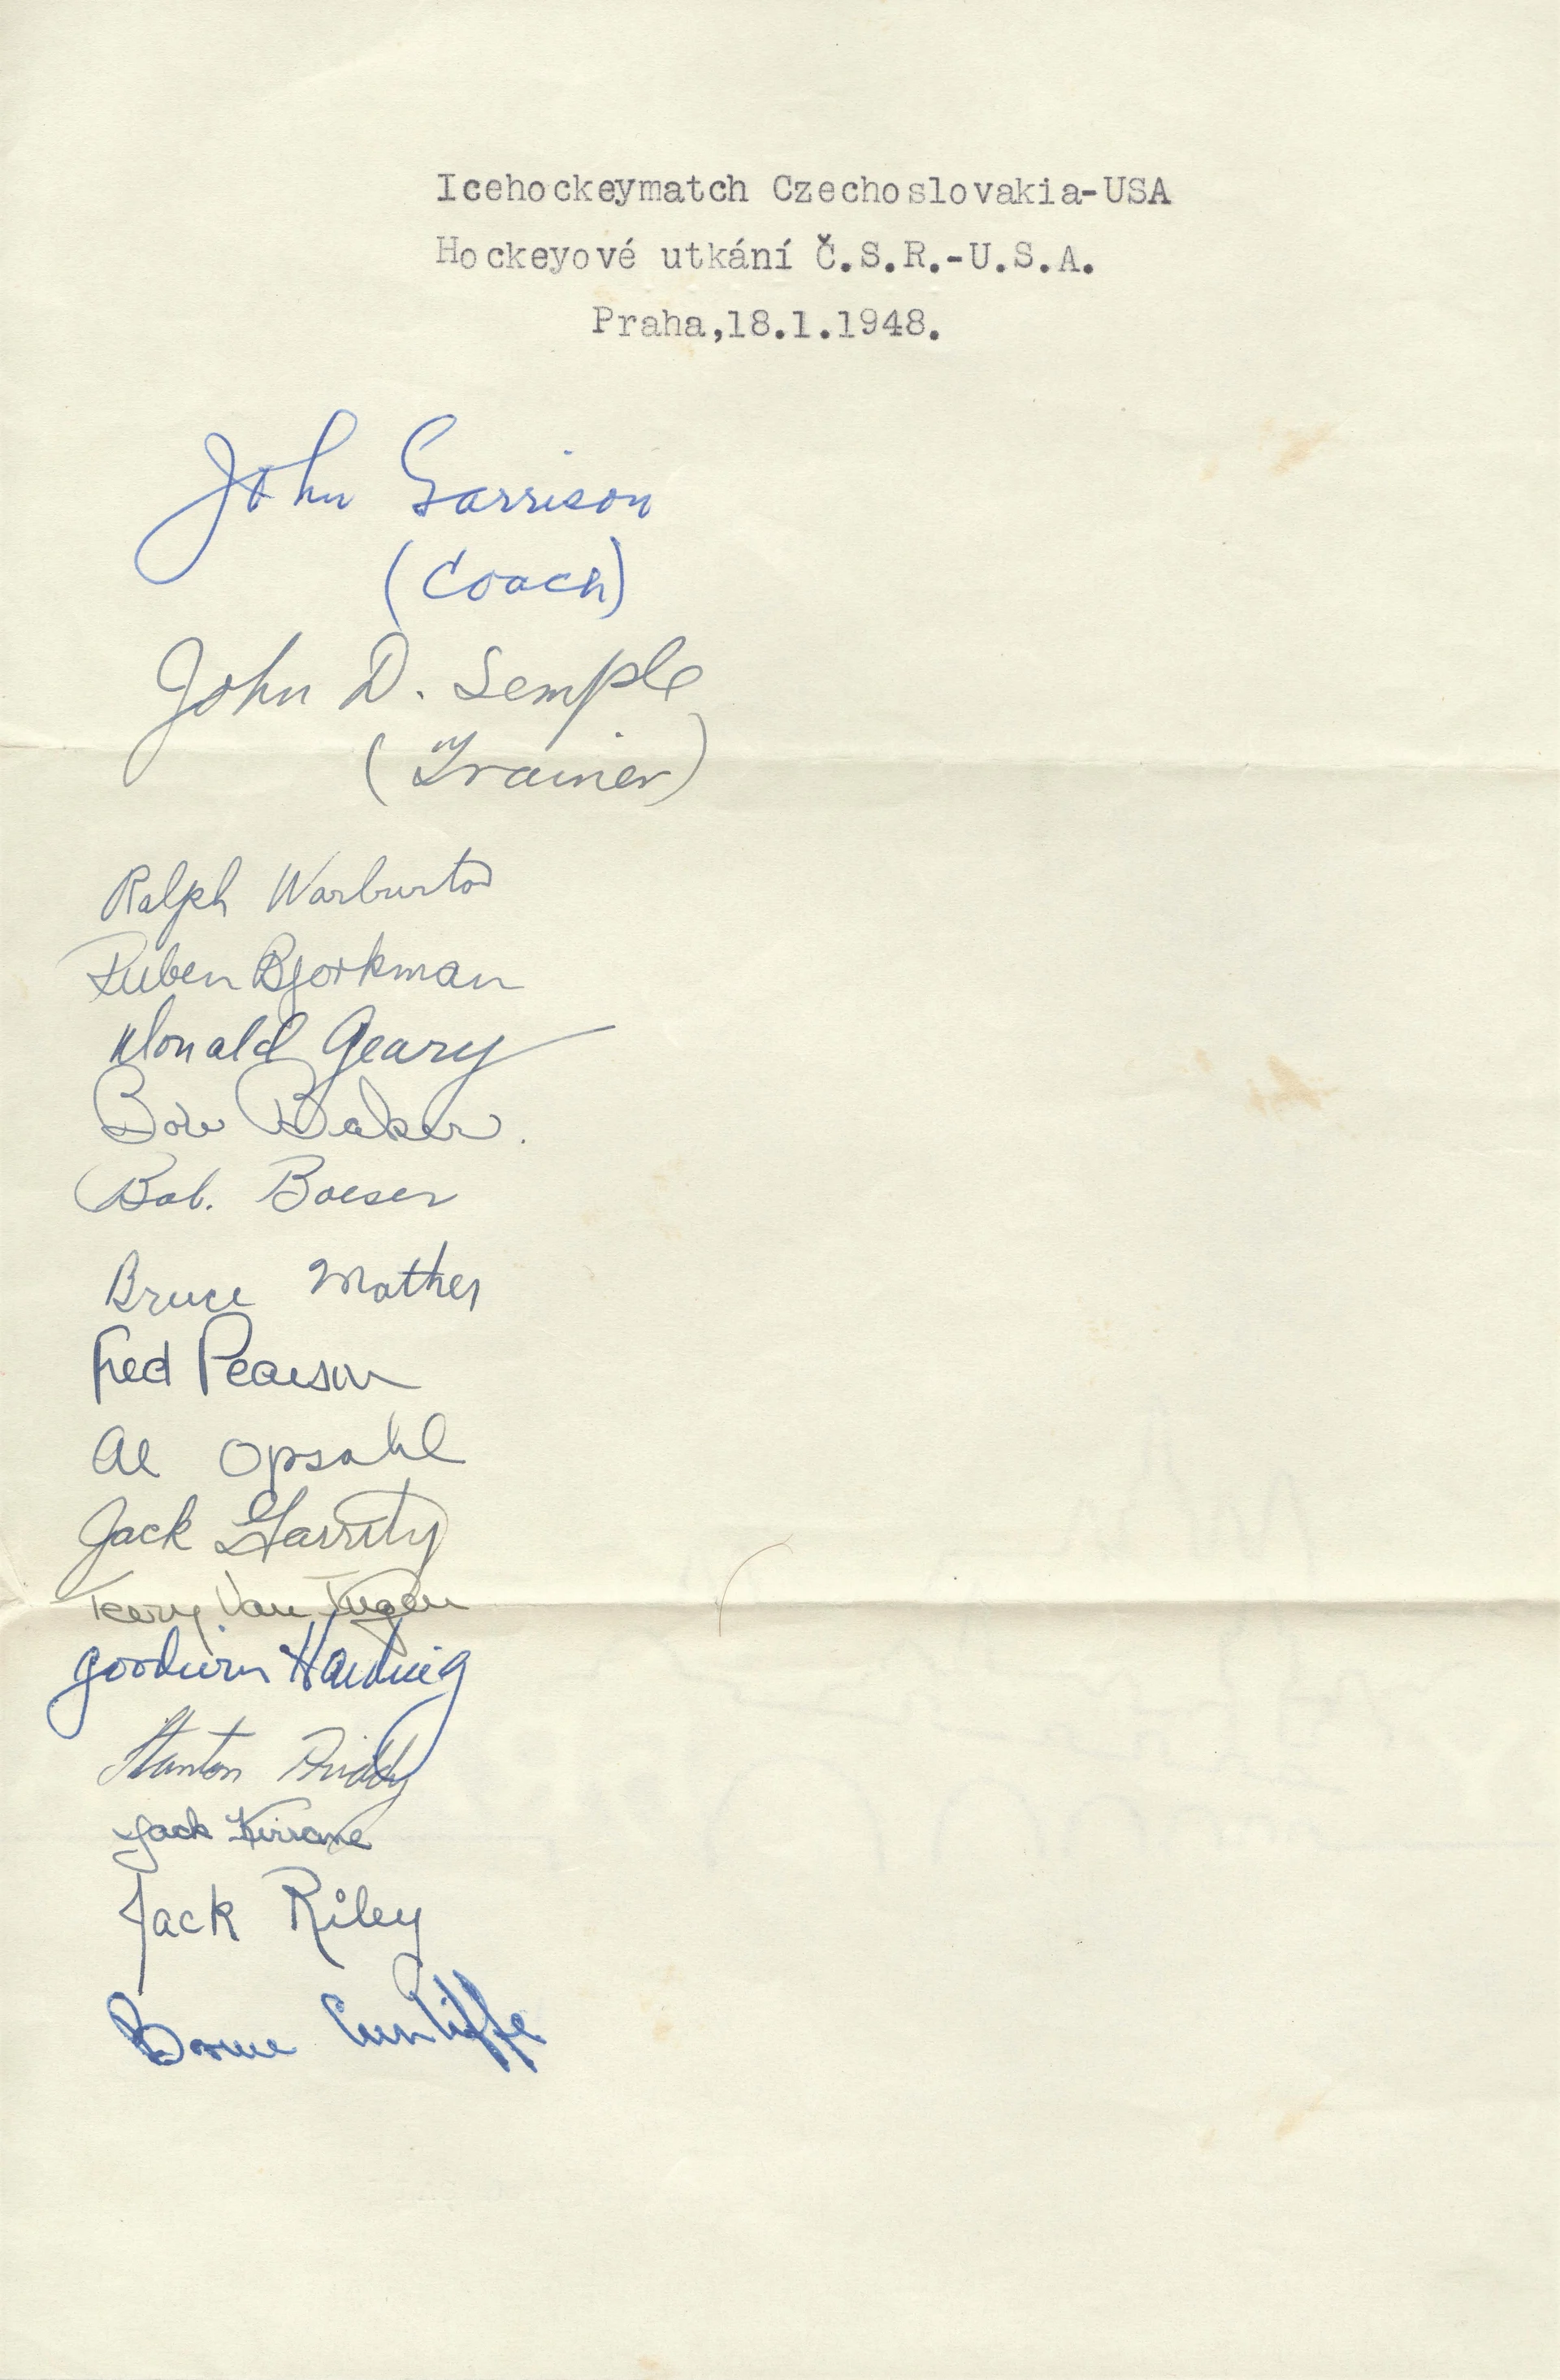 Icehockeymatch Czechoslovakia-USA
Hockeyové utkání Č.S.R.-U.S.A.
Praha,18.1.1948.
John Garrison
(Coach)
John D. Semple
(Trainer)
Ralph Warburton
Ruben Bjorkman
Donald Geary
Bob Baker.
Bob. Boeser
Bruce Mather
Fred Pearson
Al Opsahl
Jack Garrity
Van
Goodwin Harding
Stanton Priddy
Jack Kirrane
Jack Riley
Bruce Cunliffe